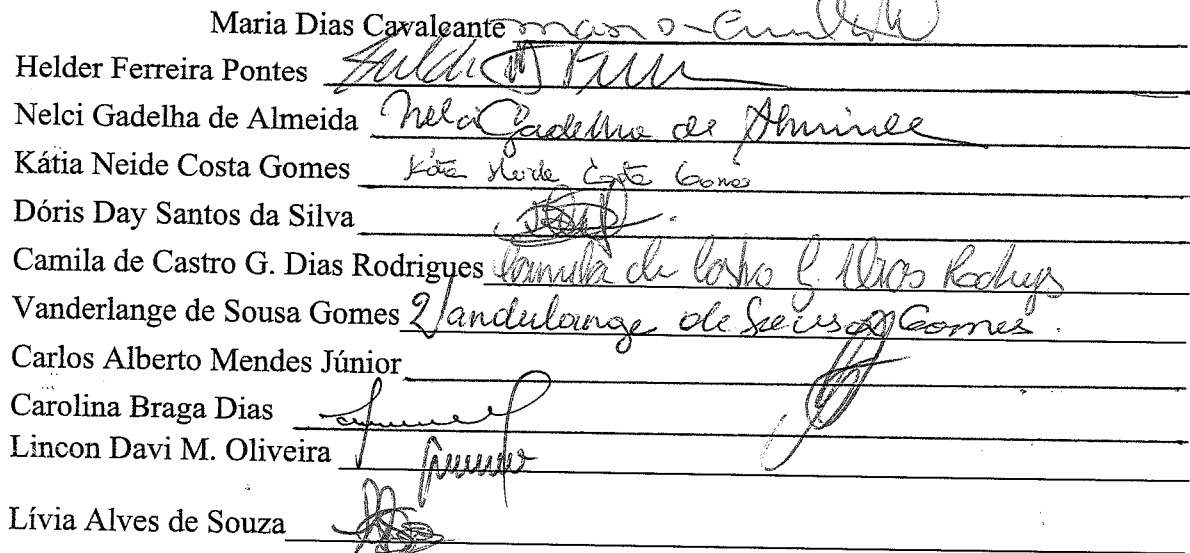 Maria Dias Cavalcante
Helder Ferreira Pontes
Nelci Gadelha de Almeida Nelci Gadelha de Almeida
Kátia Neide Costa Gomes Kátia Neide Costa Gomes
Dóris Day Santos da Silva
Camila de Castro G. Dias Rodrigues Camila de Castro G. Dias Rodrigues
Vanderlange de Sousa Gomes Vanderlange de Sousa Gomes.
Carlos Alberto Mendes Júnior
Carolina Braga Dias
Lincon Davi M. Oliveira
Lívia Alves de Souza